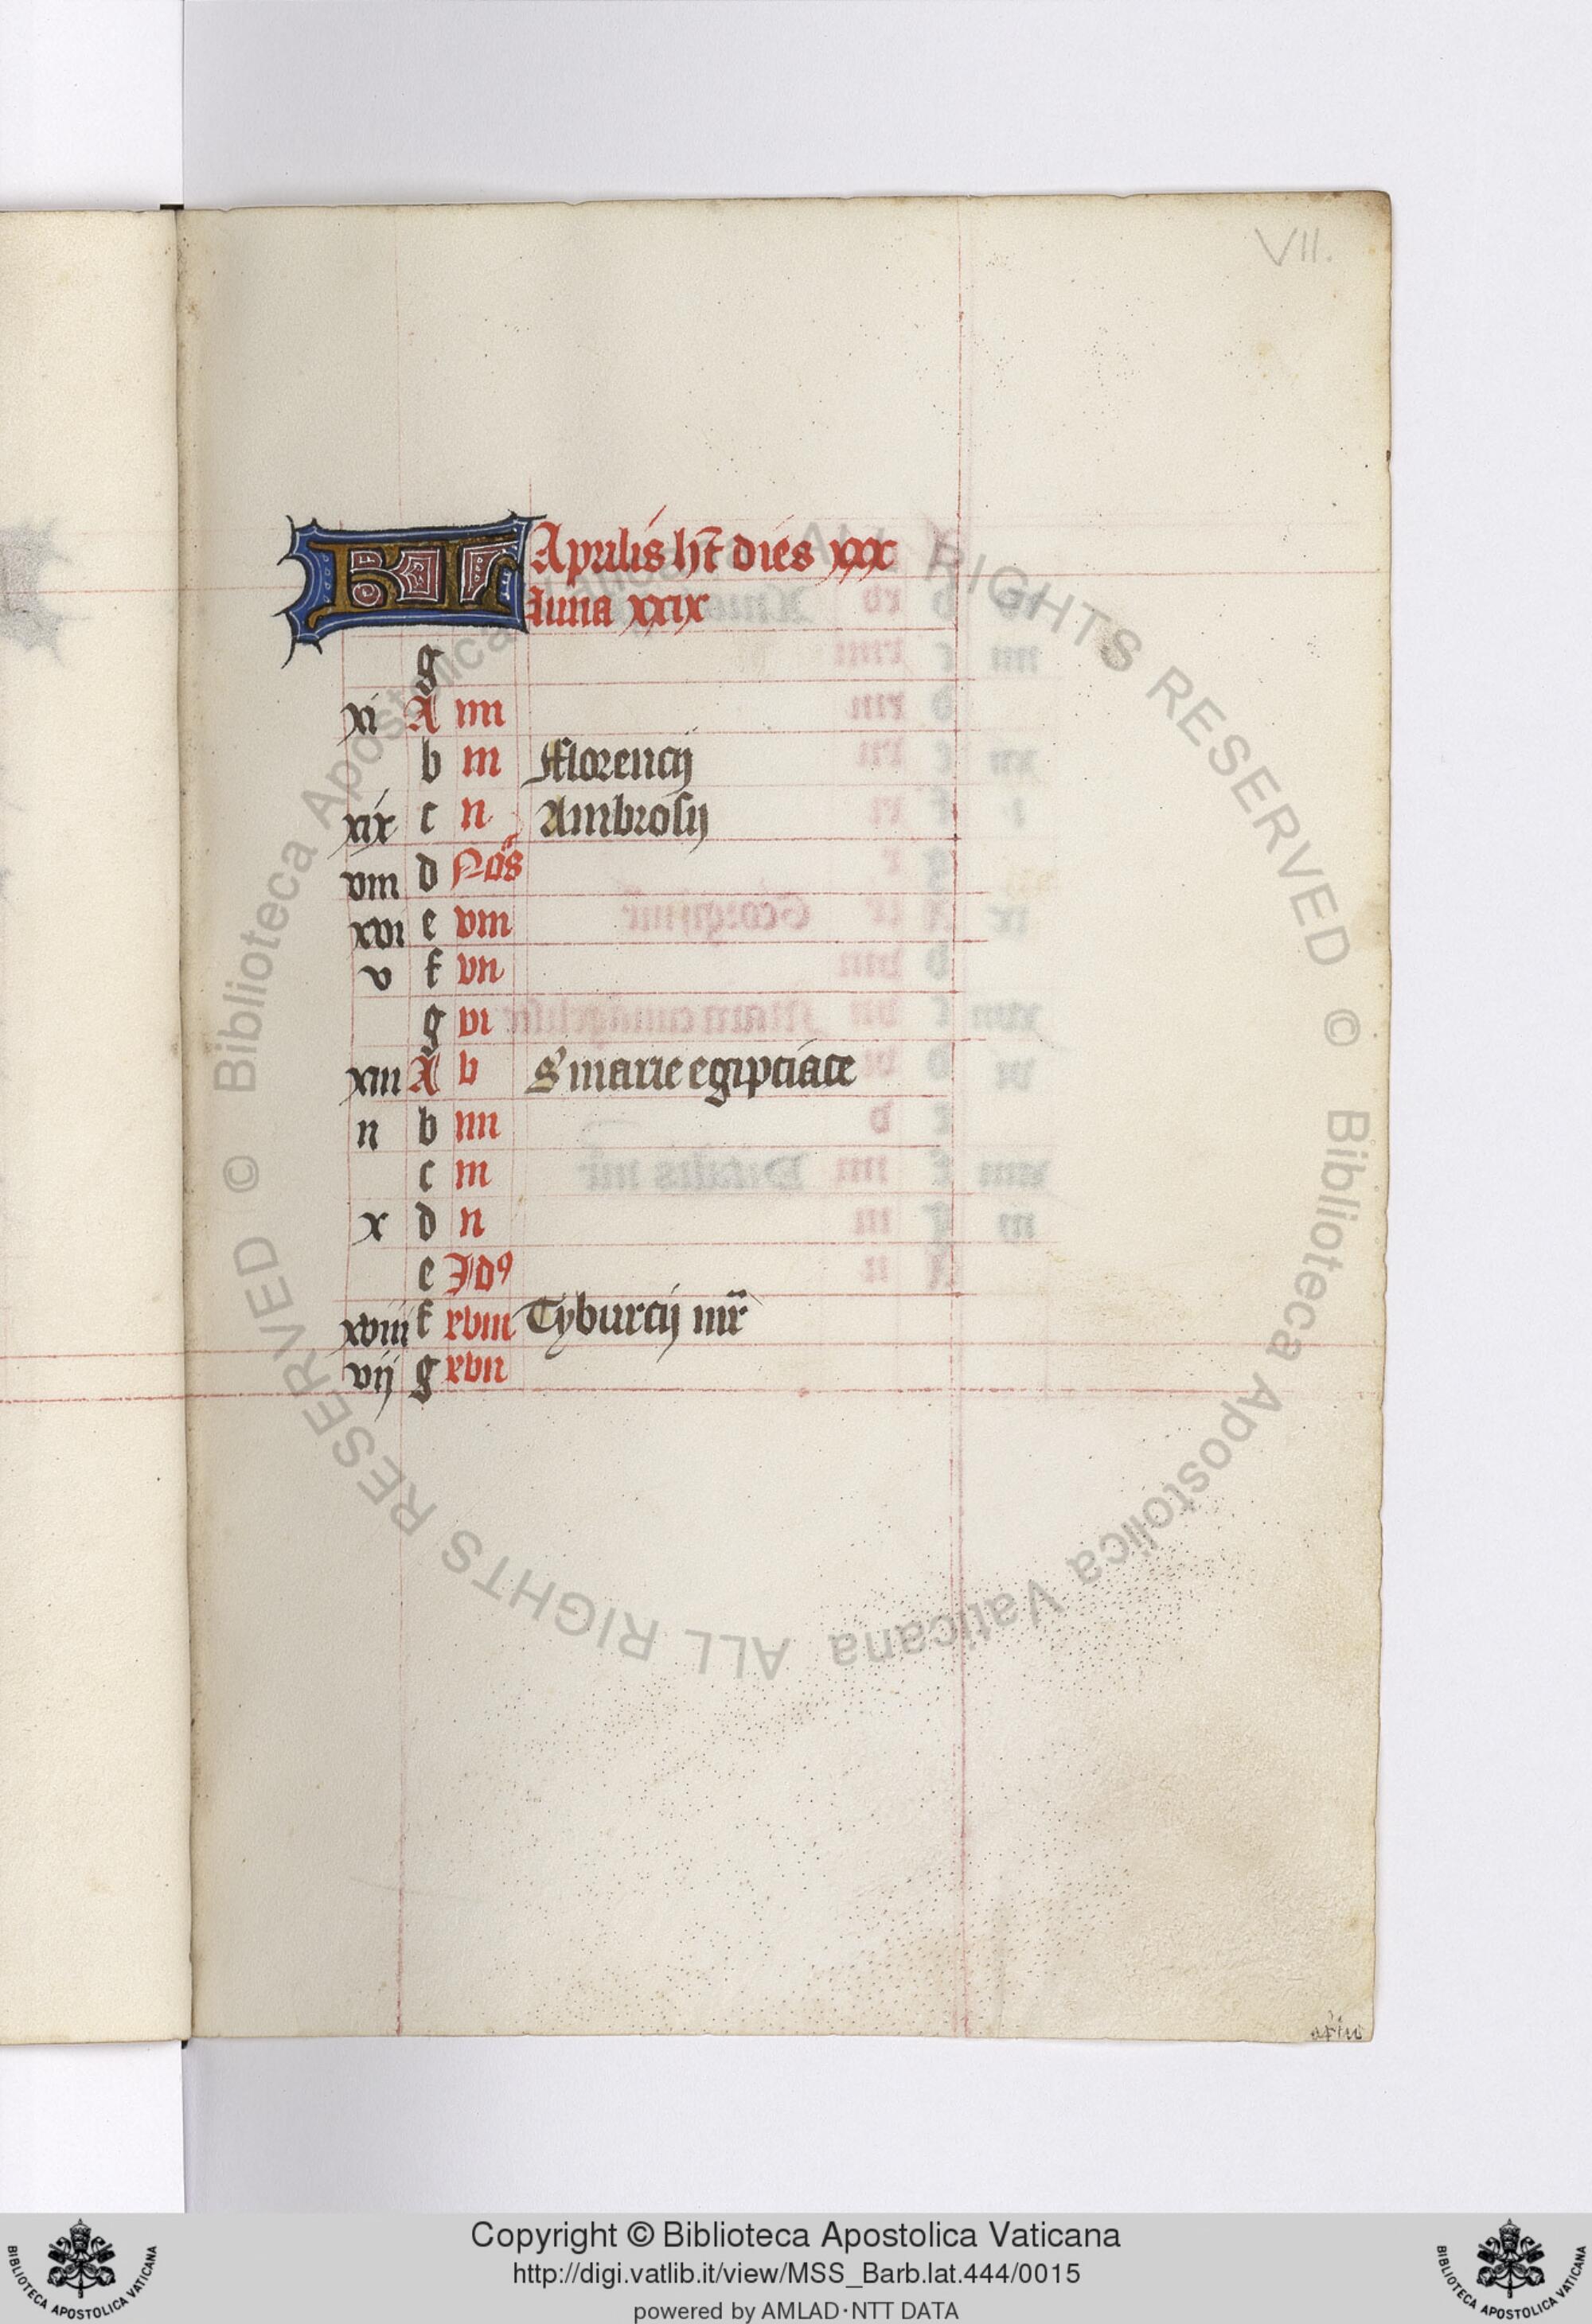 VII.
KL Aprilis hꝫt dies xxx
Luna xxix
g
xi A iiii
b iii Florencij
xix c ii Ambrosij
viii d Noꝰs
xvi e viii
v f vii
g vi
xiii A v S marie egipciace
ii b iiii
c iii
x d ii
e Idꝰ
xviii f xviii Tyburcij mr̄
vij g xvii
© Biblioteca Apostolica Vaticana ALL RIGHTS RESERVED © Biblioteca Apostolica Vaticana ALL RIGHTS RESERVED
Copyright © Biblioteca Apostolica Vaticana
http://digi.vatlib.it/view/MSS_Barb.lat.444/0015
powered by AMLAD·NTT DATA
BIBLIOTECA APOSTOLICA VATICANA
BIBLIOTECA APOSTOLICA VATICANA